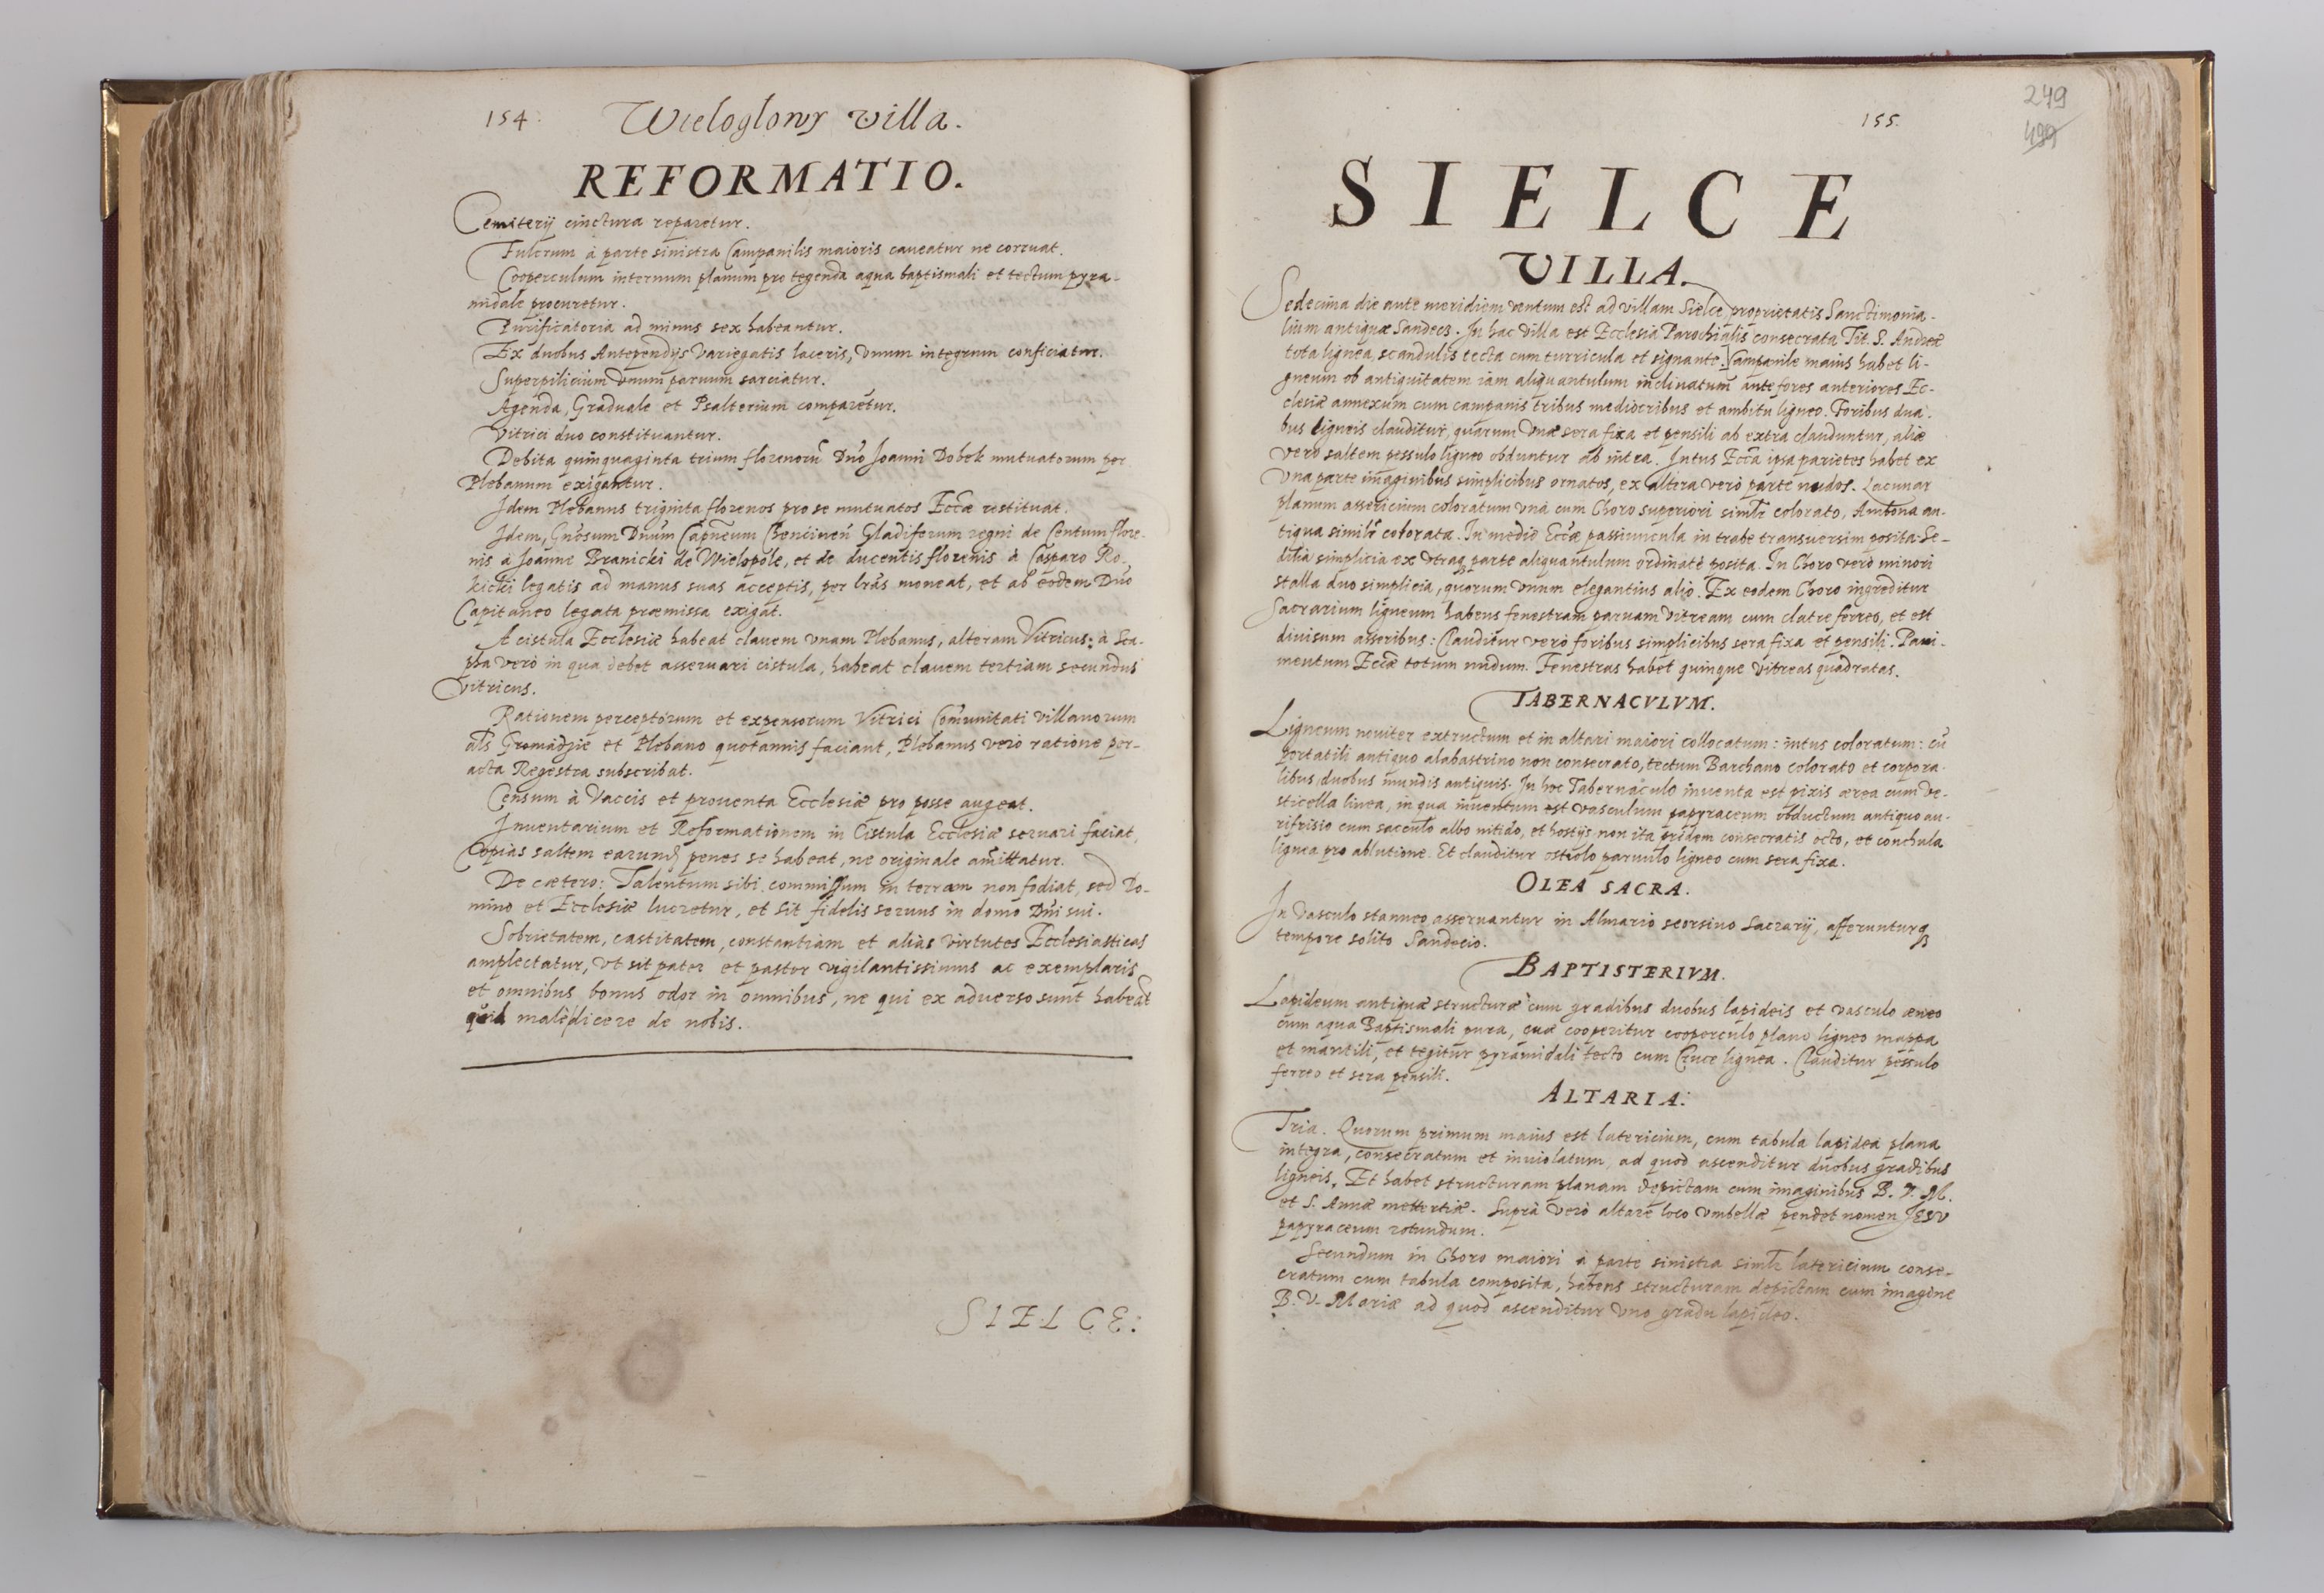 154.
Wieloglowy Villa.
REFORMATIO.
Cemiterij cinctura reparetur.
Fulcrum à parte sinistra Campanilis maioris caueatur ne corruat.
Cooperculum internum planum pro tegenda aqua baptismali et tectum pyra-
midale procuretur.
Purificatoria ad minus sex habeantur.
Ex duobus Antependijs variegatis laceris, vnum integrum conficiatur.
Superpilicium vnum paruum sarciatur.
Agenda, Graduale et Psalterium comparetur.
Vitrici duo constituantur.
Debita quinquaginta trium florenorũ Dnõ Joanni Dobek mutuatorum per
Plebanum exigantur.
Idem Plebanus triginta florenos pro se mutuatos Eccæ restituat.
Idem, Gnosum Dnum Capneum Chencineñ Gladiferum regni de Centum flore-
nis à Joanne Branicki de Wielopole, et de ducentis florenis à Casparo Ro-
kicki legatis ad manus suas acceptis, per lras moneat, et ab eodem Dno
Capitaneo legata præmissa exigat.
A cistula Ecclesiæ habeat clauem vnam Plebanus, alteram Vitricus: à Sca-
pha verò in qua debet asseruari cistula, habeat clauem tertiam secundus
vitricus.
Rationem perceptorum et expensorum Vitrici Comunitati villanorum
als Gromadzie et Plebano quotannis faciant, Plebanus verò ratione per-
acta Regestra subscribat.
Censum à Vaccis et prouenta Ecclesiæ pro posse augeat.
Inuentarium et Reformationem in Cistula Ecclesiæ seruari faciat,
Copias saltem earund penes se habeat, ne originale amittatur.
De cætero: Talentum sibi commissum in terram non fodiat, sed Do-
mino et Ecclesiæ lucretur, et sit fidelis seruus in domo Dni sui.
Sobrietatem, castitatem, constantiam et aliàs virtutes Ecclesiasticas
amplectatur, vt sit pater et pastor vigilantissimus ac exemplaris
et omnibus bonus odor in omnibus, ne qui ex aduerso sunt habeãt
quid maledicere de nobis.
SIELCE:
249
499
155.
SIELCE
VILLA.
Sedecima die ante meridiem ventum est ad villam Sielce, proprietatis Sanctimonia-
lium antiquæ Sandecz. In hac villa est Ecclesia Parochialis consecrata Tit. S. Andreæ
tota lignea, scandulis tecta cum turricula et signante. Campanile maius habet li-
gneum ob antiquitatem iam aliquantulum inclinatum ante fores anteriores Ec-
clesiæ annexum cum campanis tribus mediocribus et ambitu ligneo. Foribus dua-
bus ligneis clauditur, quarum vnæ sera fixa et pensili ab extra clauduntur, aliæ
vero saltem pessulo ligneo obduntur ab intra. Intus Ecca ipsa parietes habet ex
vna parte imaginibus simplicibus ornatos, ex altera verò parte nudos. Lacunar
planum assericium coloratum vnà cum Choro superiori simlr colorato, Ambona an-
tiqua similr colorata. In medio Eccæ passiuncula in trabe transuersim posita. Se-
dilia simplicia ex vtraq parte aliquantulum ordinatè posita. In Choro verò minori
stalla duo simplicia, quorum vnum elegantius alio. Ex eodem Choro ingreditur
Sacrarium ligneum habens fenestram paruam vitream cum clatre ferreo, et est
diuisum asseribus: Clauditur verò foribus simplicibus sera fixa et pensili. Paui-
mentum Eccæ totum nudum. Fenestras habet quinque vitreas quadratas.
TABERNACVLVM.
Ligneum nouiter extructum et in altari maiori collocatum: intus coloratum: cũ
portatili antiquo alabastrino non consecrato, tectum Barchano colorato et corpora-
libus duobus mundis antiquis. In hoc Tabernaculo inuenta est pixis ærea cum ve-
sticella linea, in qua inuentum est vasculum papyraceum obductum antiquo au-
rifrisio cum sacculo albo nitido, et hostijs non ita pridem consecratis octo, et conchula
lignea pro ablutione. Et clauditur ostiolo paruulo ligneo cum sera fixa.
OLEA SACRA.
In vasculo stanneo asseruantur in Almario seorsiuo Sacrarij, afferunturq
tempore solito Sandecio.
BAPTISTERIVM.
Lapideum antiquæ structuræ cum gradibus duobus lapideis et vasculo æneo
cum aqua Baptismali pura, quæ cooperitur cooperculo plano ligneo mappa
et mantili, et tegitur pyramidali tecto cum Cruce lignea. Clauditur pessulo
ferreo et sera pensili.
ALTARIA:
Tria. Quorum primum maius est latericium, cum tabula lapidea plana
integra, consecratum et inuiolatum, ad quod ascenditur duobus gradibus
ligneis. Et habet structuram planam depictam cum imaginibus B. V. M.
et S. Annæ mettertiæ. Suprà verò altare loco vmbellæ pendet nomen JESV
papyraceum rotundum.
Secundum in Choro maiori à parte sinistra simlr latericium conse-
cratum cum tabula composita, habens structuram depictam cum imagine
B. V. Mariæ ad quod ascenditur vno gradu lapideo.